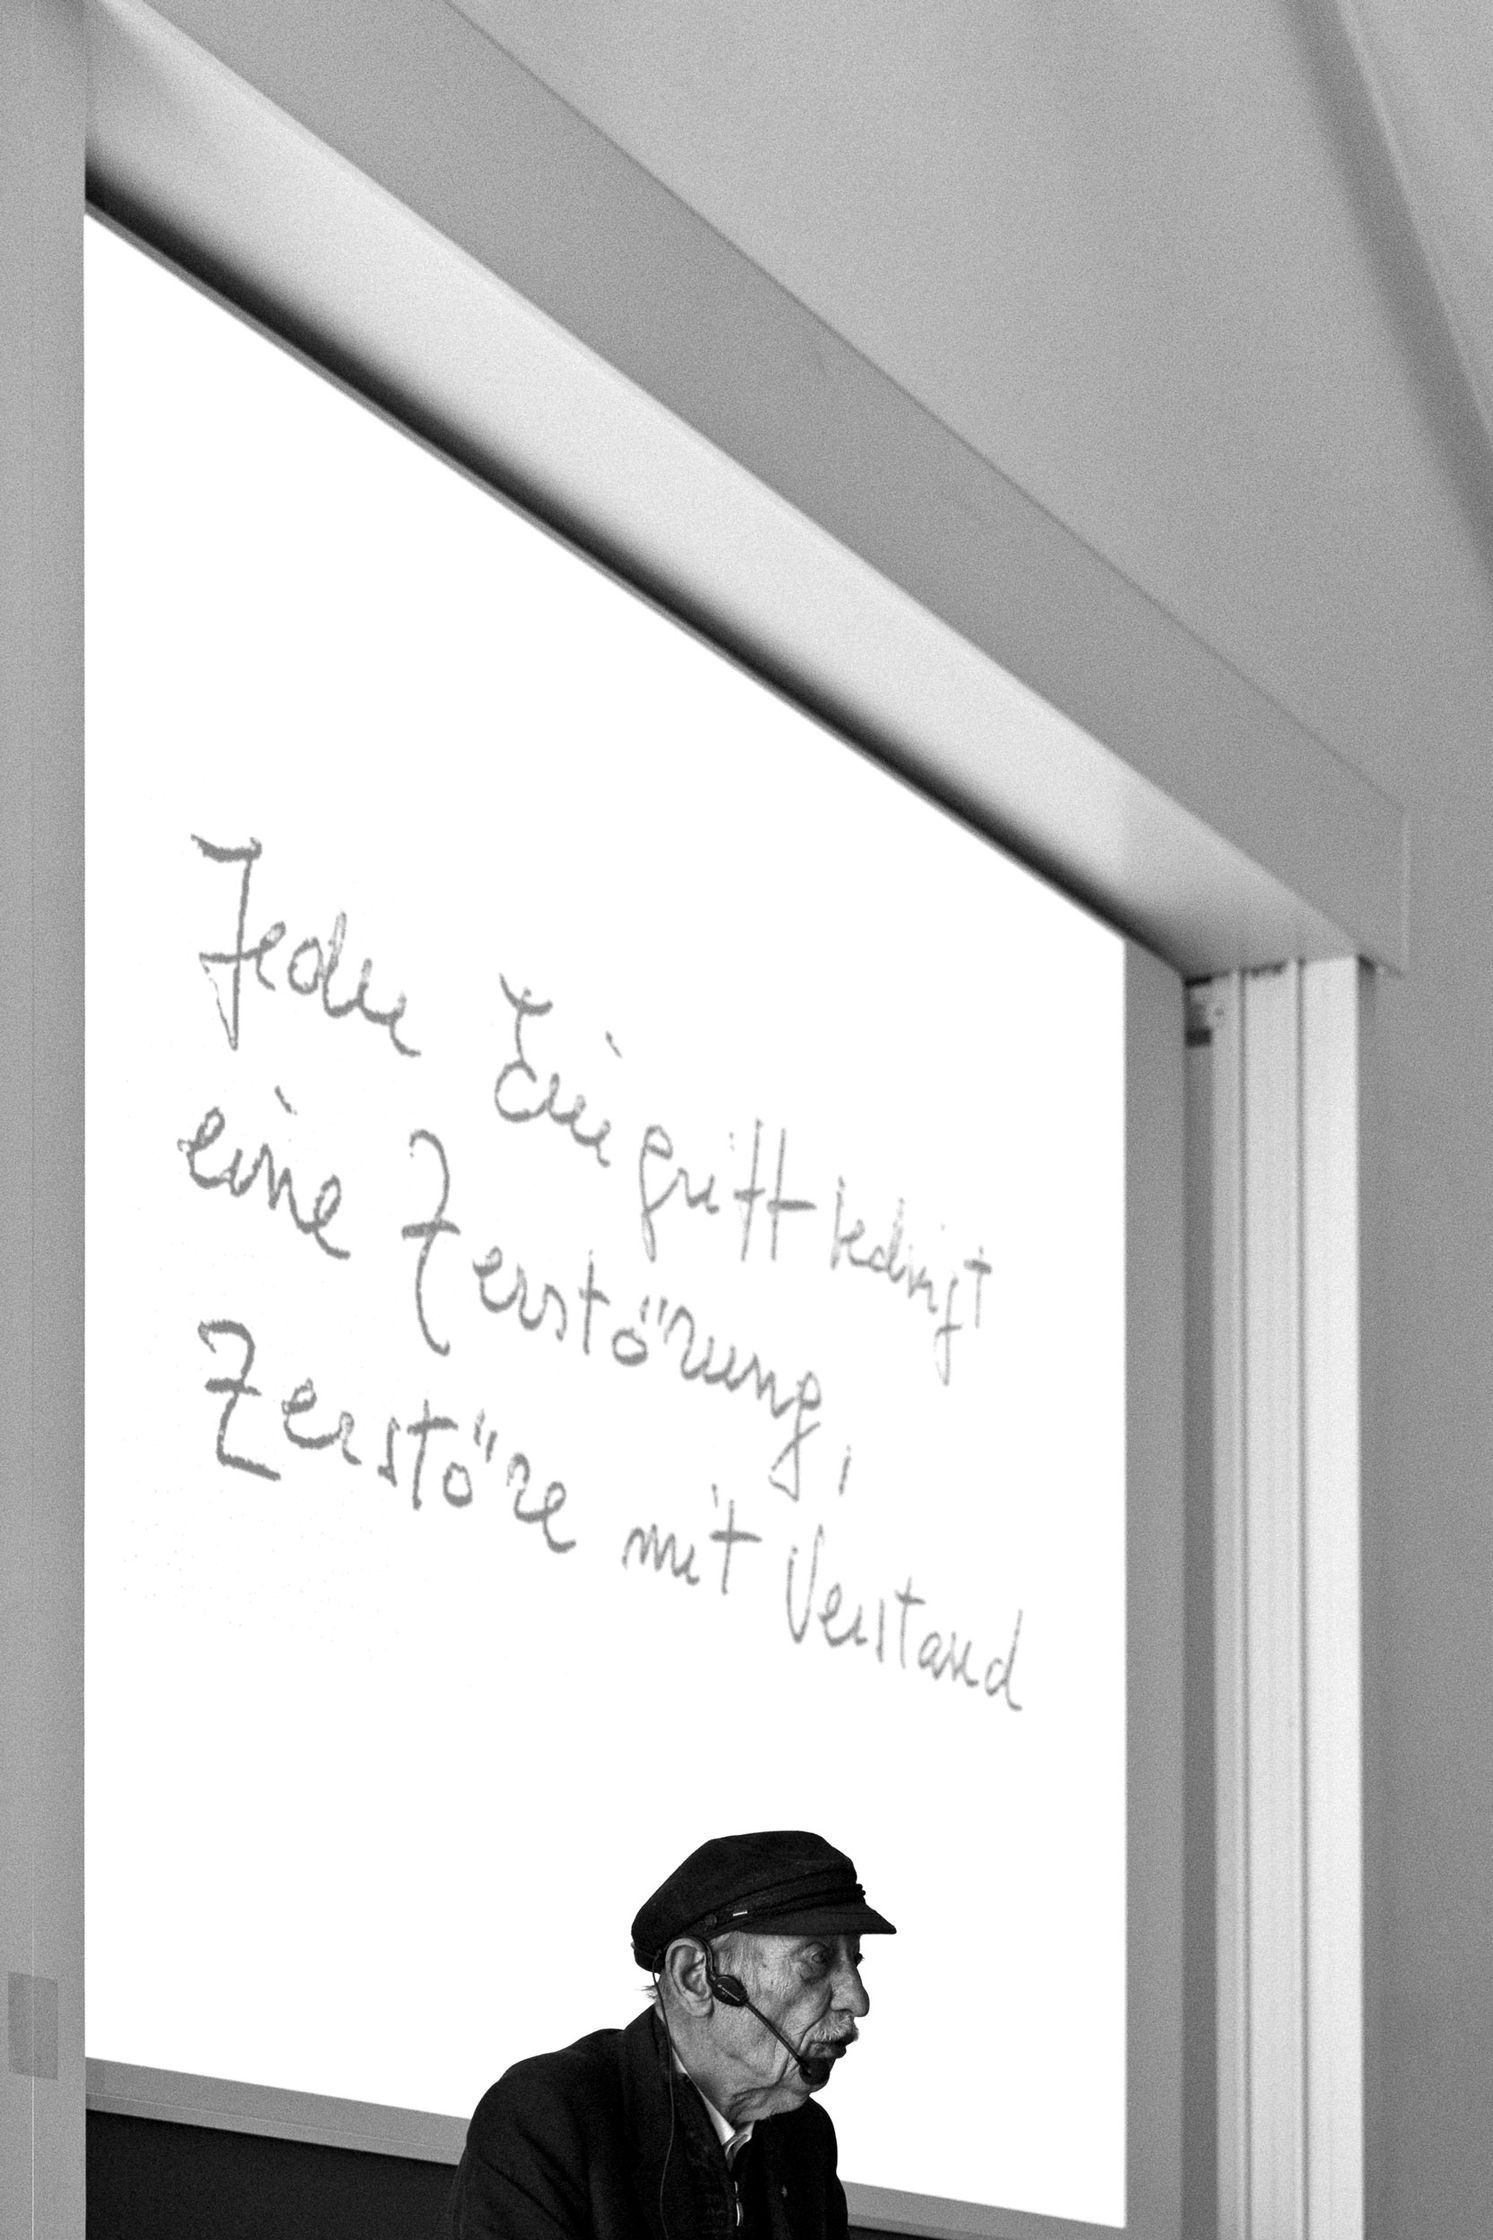 Jeder Eingriff bedingt
eine Zerstörung,
Zerstöre mit Verstand